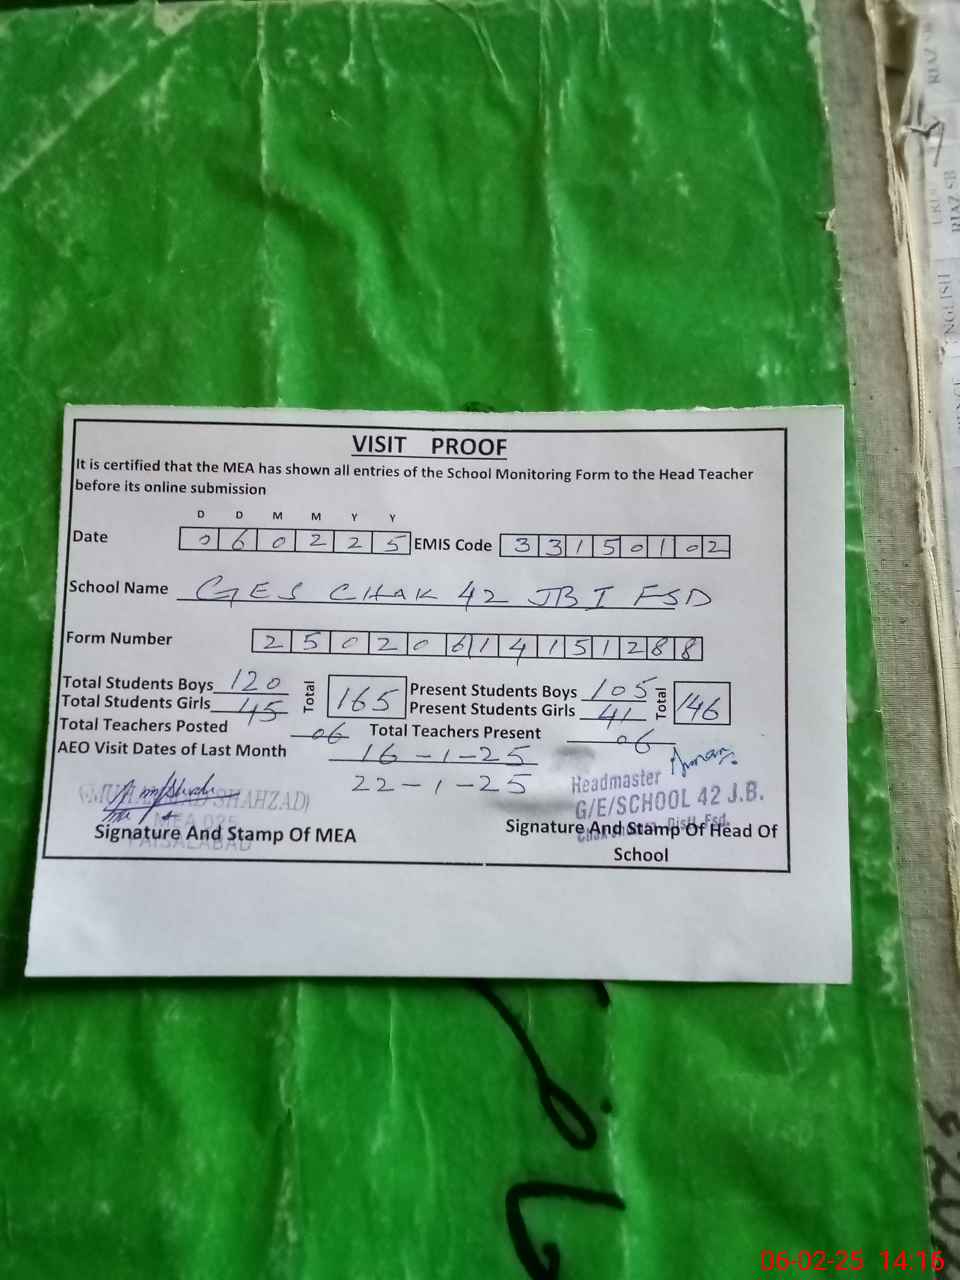 VISIT PROOF
It is certified that the MEA has shown all entries of the School Monitoring Form to the Head Teacher
before its online submission
D D M M Y Y
Date 0 6 0 2 2 5 EMIS Code 3 3 1 5 0 1 0 2
School Name GES CHAK 42 JB I FSD
Form Number 2 5 0 2 0 6 1 4 1 5 1 2 8 8
Total Students Boys 120 Total 165 Present Students Boys 105 Total 146
Total Students Girls 45 Present Students Girls 41
Total Teachers Posted 06 Total Teachers Present 06
AEO Visit Dates of Last Month 16-1-25
22-1-25
Headmaster
G/E/SCHOOL 42 J.B.
Distt. Fsd.
SHAHZAD)
MEA 025
FAISALABAD
Signature And Stamp Of MEA
Signature And Stamp Of Head Of
School
RIAZ SB
ENGLISH
06-02-25 14:16